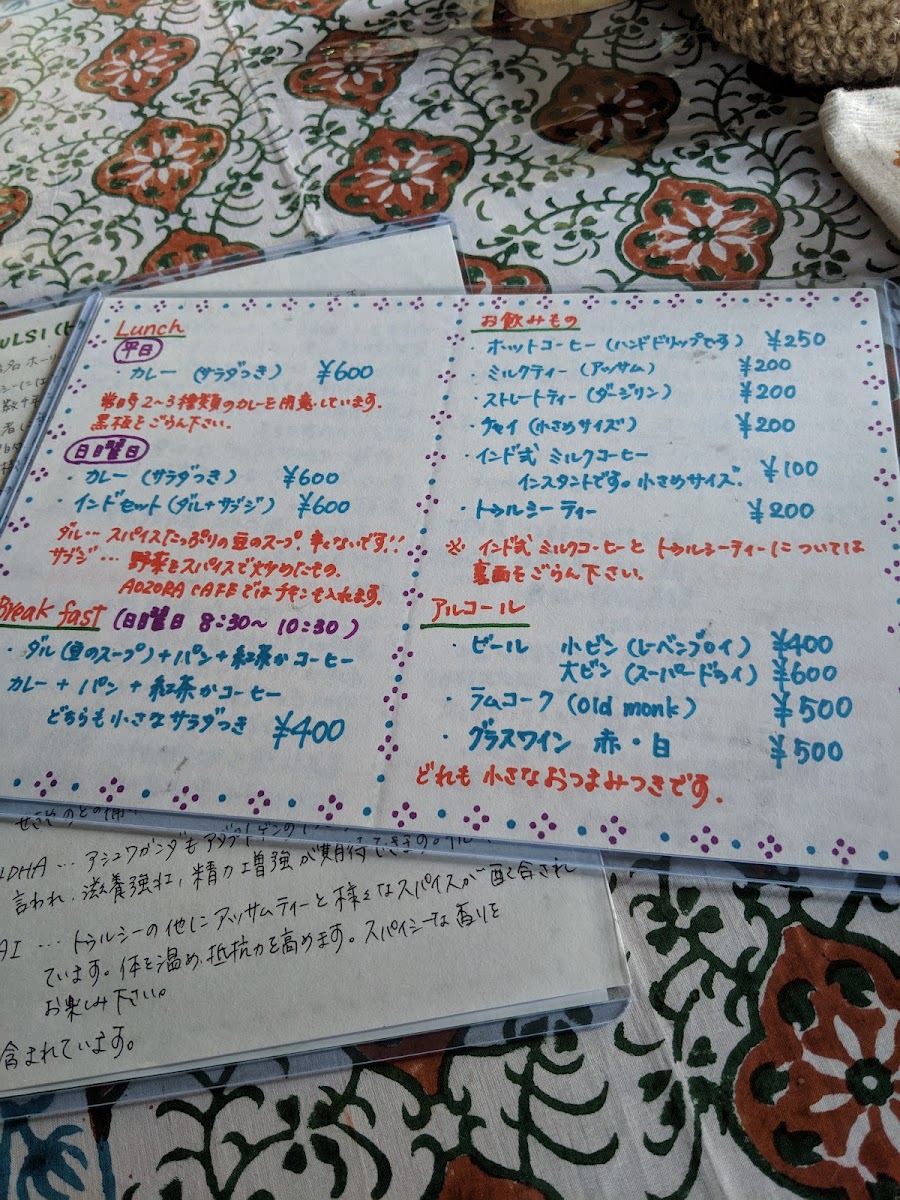 Lunch
平日
・カレー (サラダつき) ¥600
常時2~3種類のカレーを用意しています.
黒板をごらん下さい.
日曜日
・カレー (サラダつき) ¥600
・インドセット (ダル+サブジ) ¥600
ダル… スパイスたっぷりの豆のスープ. 辛くないです!!
サブジ… 野菜をスパイスで炒めたもの.
AOZORA CAFEではチキンも入れます.
Breakfast (日曜日 8:30~10:30)
・ダル (豆のスープ) + パン + 紅茶かコーヒー
カレー + パン + 紅茶かコーヒー
どちらも小さなサラダつき ¥400
お飲みもの
・ホットコーヒー (ハンドドリップです) ¥250
・ミルクティー (アッサム) ¥200
・ストレートティー (ダージリン) ¥200
・チャイ (小さめサイズ) ¥200
・インド式 ミルクコーヒー
インスタントです。小さめサイズ. ¥100
・トゥルシーティー ¥200
※ インド式ミルクコーヒーと トゥルシーティーについては
裏面をごらん下さい.
アルコール
・ビール 小ビン (レーベンブロイ) ¥400
大ビン (スーパードライ) ¥600
・ラムコーク (old monk) ¥500
・グラスワイン 赤・白 ¥500
どれも 小さなおつまみつきです.
ULSI (H
名 ホーリ
シーには
数千年
LDHA … アシュワガンダもアダプトゲンの
言われ、滋養強壮、精力増強が期待できます。
AI … トゥルシーの他にアッサムティーと様々なスパイスが配合され
ています。体を温め、抵抗力を高めます。スパイシーな香りを
お楽しみ下さい。
含まれています。